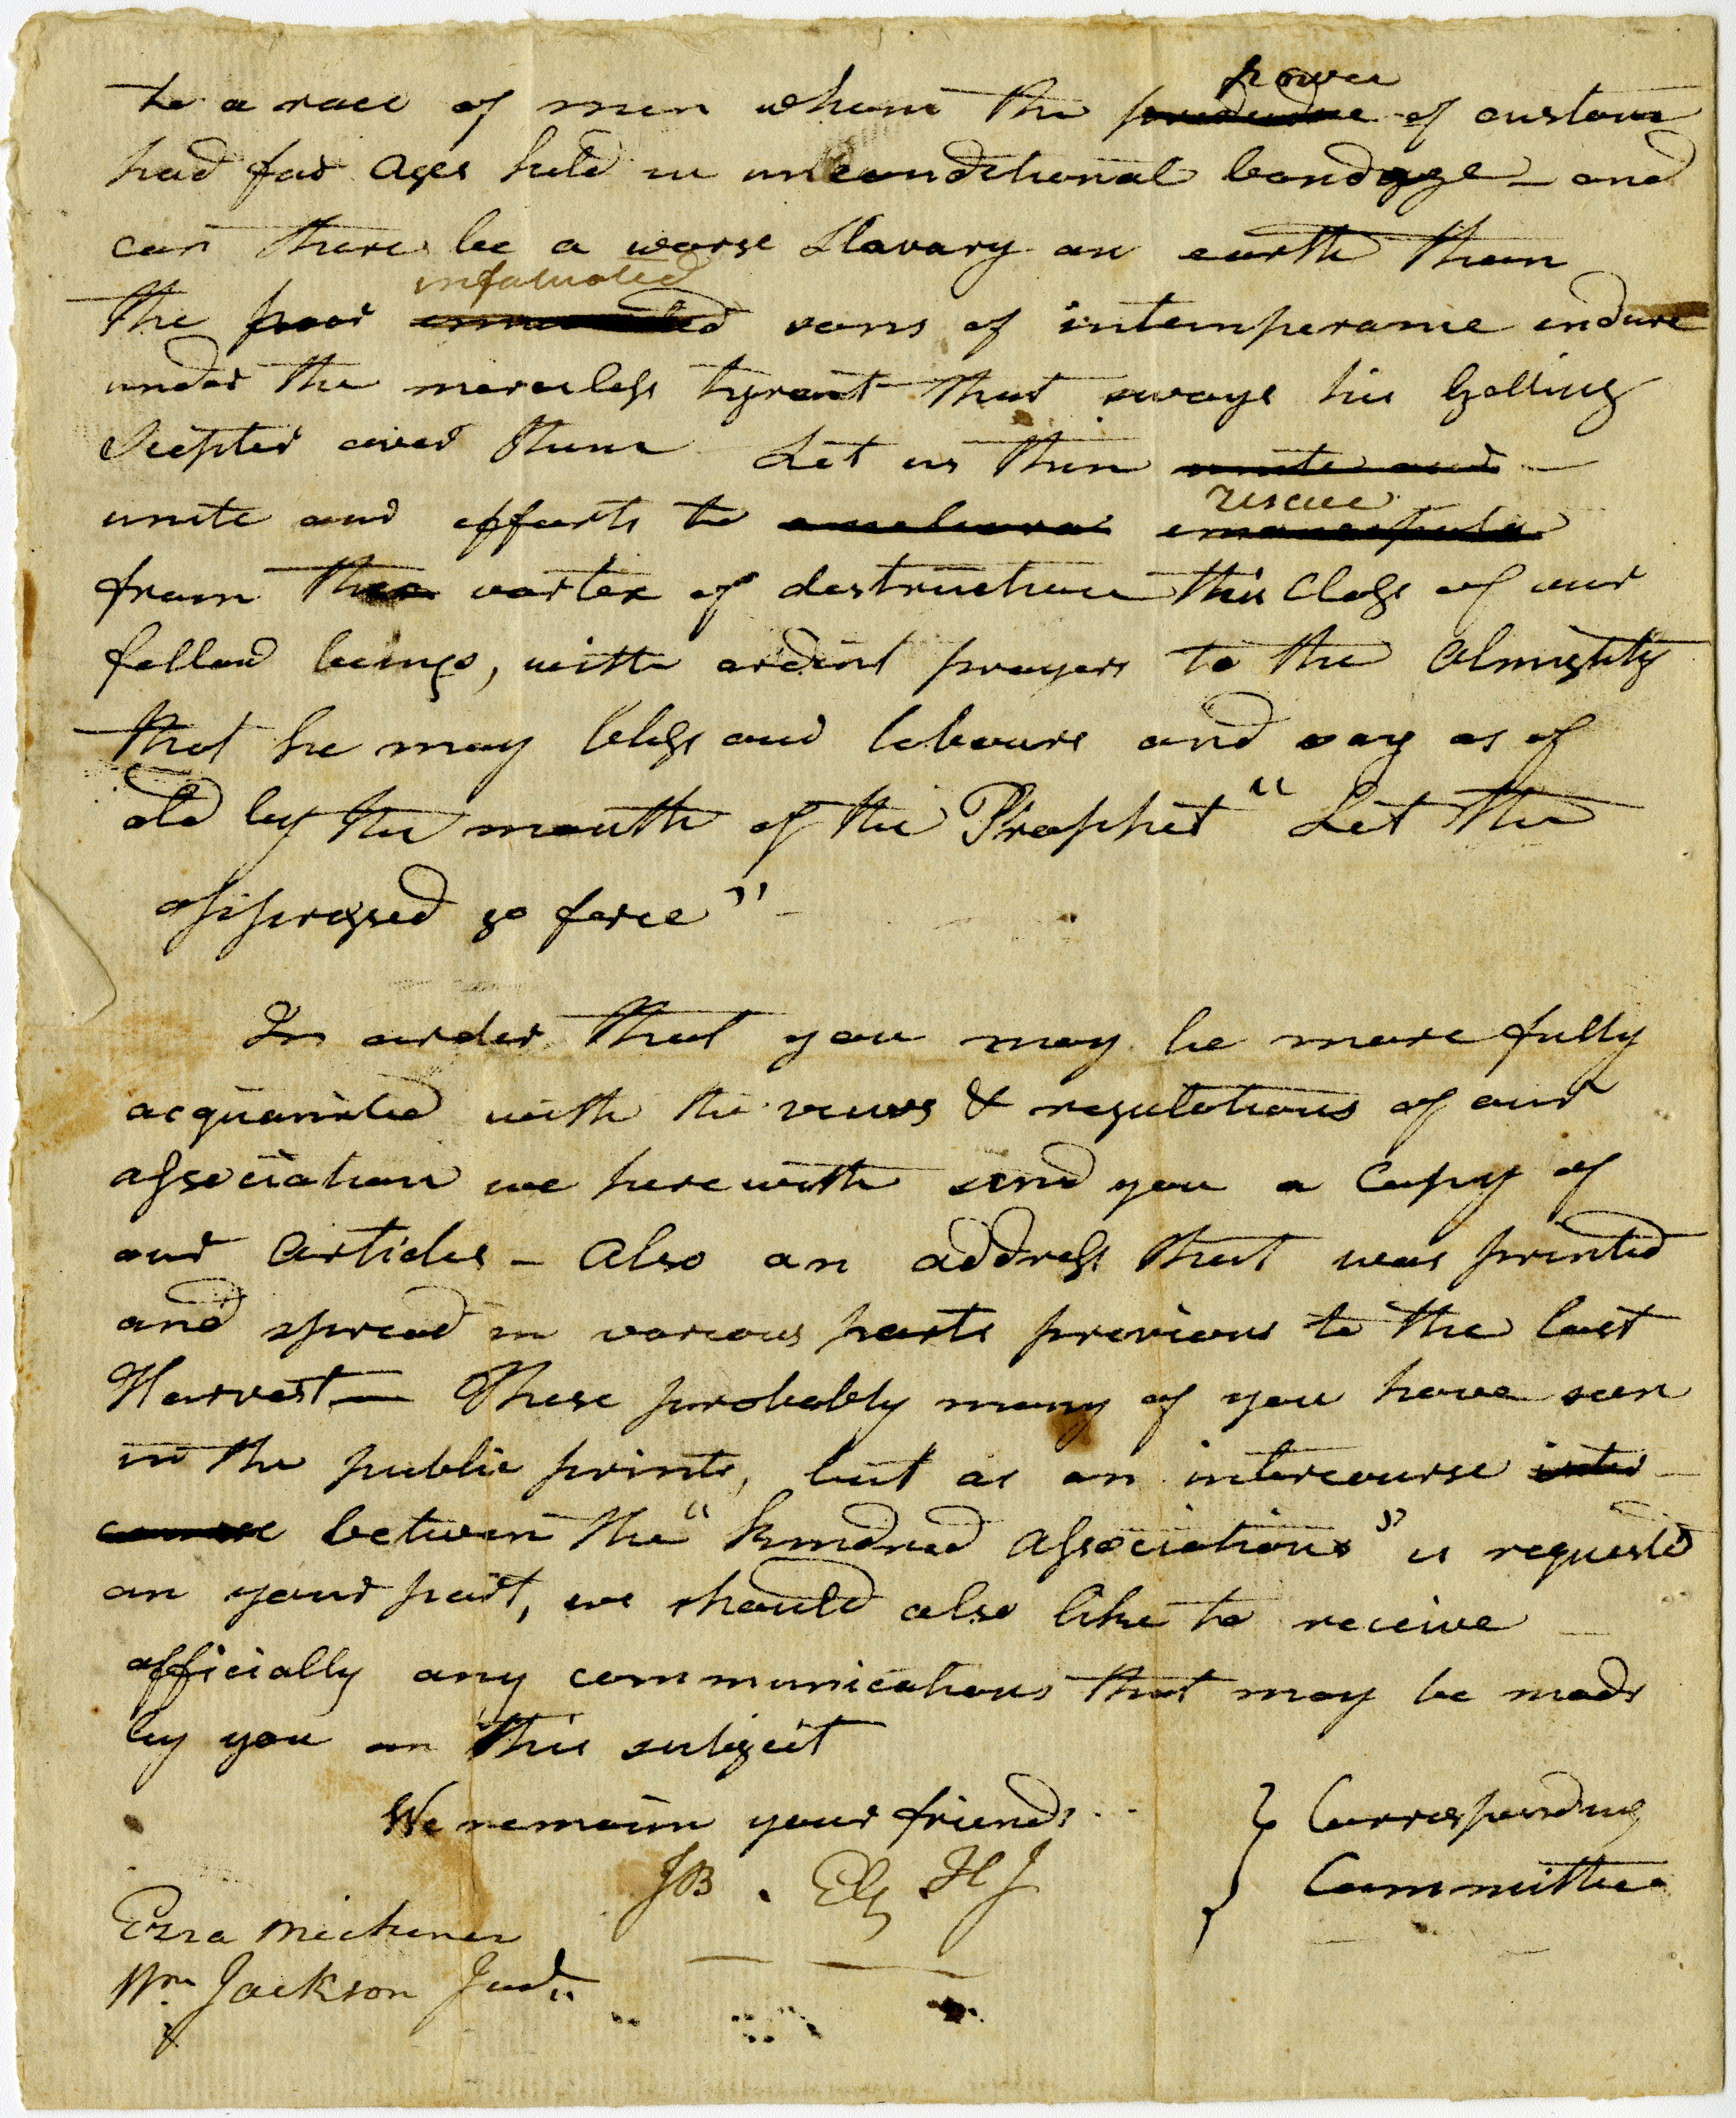 to a race of men whom the power of custom
had for ages held in unconditional bondage – and
can there be a worse Slavary on earth than
the poor infatuated sons of intemperance endure
under the merciless tyrant that sways his galling
Scepter over them Let us then unite and –
unite our efforts to rescue
from the vortex of destruction this Class of our
fellow beings, with ardent prayers to the Almighty
that he may bless our labours and say as of
old by the mouth of the Prophet "Let the
oppressed go free" –
In order that you may be more fully
acquainted with the views & regulations of our
association we herewith send you a Copy of
our Articles – Also an address that was printed
and spread in various parts previous to the last
Harvest – These probably many of you have seen
in the public prints, but as an intercourse inter
course between the "kindred Associations" is requested
on your part, we should also like to receive
officially any communications that may be made
by you on this subject
We remain your friends } Corresponding
JB . EM HJ } Committee
Ezra Michener
Wm Jackson Junr